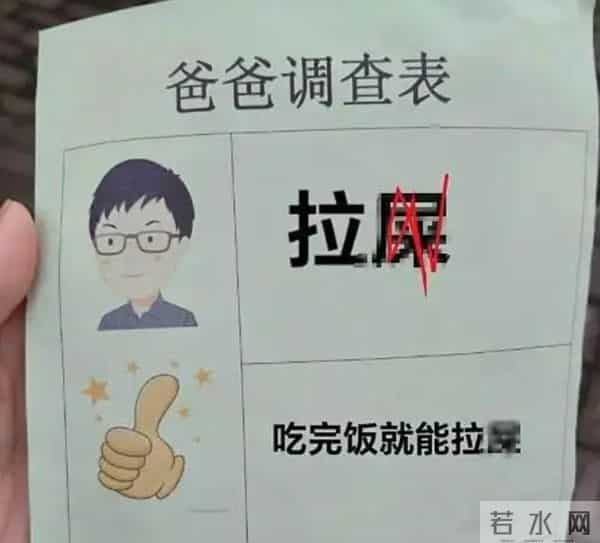 爸爸调查表
拉屎
吃完饭就能拉
若水网